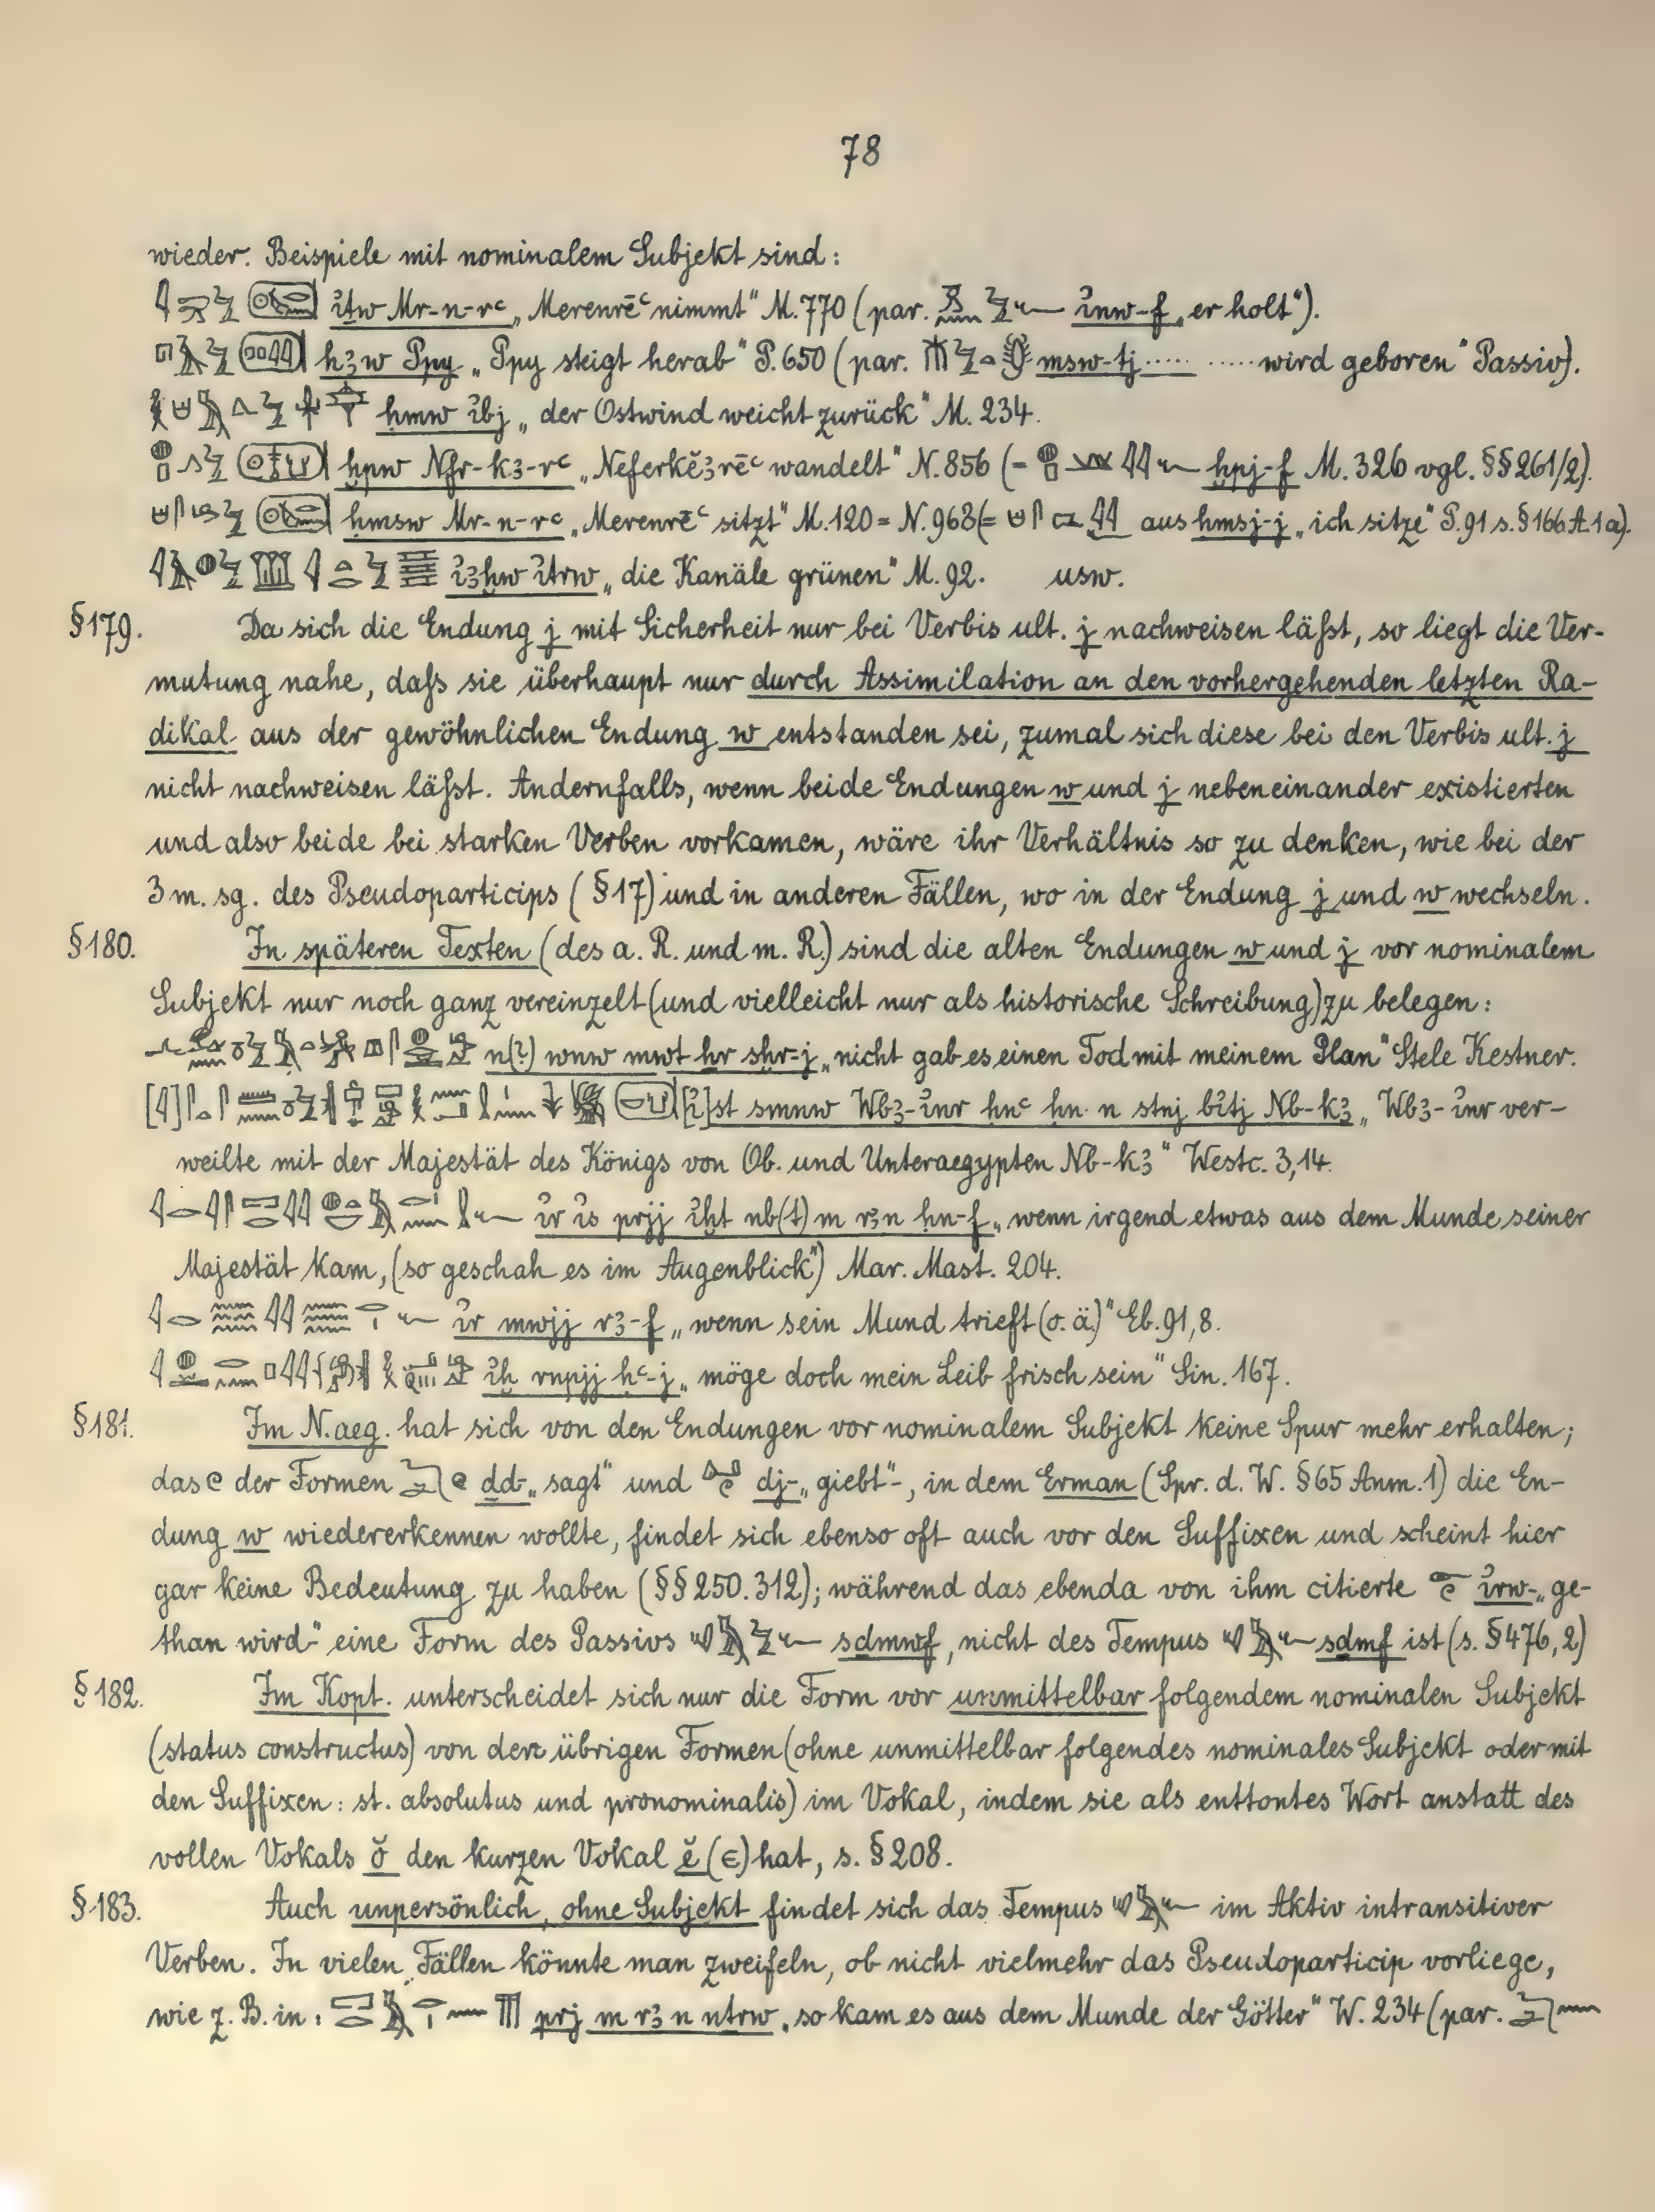 78
wieder. Beispiele mit nominalem Subjekt sind:
ἰṯw Mr-n-rꜥ „Merenrēꜥ nimmt“ M. 770 (par. ἰnw-f „er holt“).
hꜣw Ppy „Ppy steigt herab“ P. 650 (par. msw-tj ..... ..... wird geboren“ Passiv).
ḥmw ἰbj „der Ostwind weicht zurück“ M. 234.
ḫpw Nfr-kꜣ-rꜥ „Neferkĕꜣrēꜥ wandelt“ N. 856 (= ḫpj-f M. 326 vgl. §§ 261/2).
ḥmsw Mr-n-rꜥ „Merenrēꜥ sitzt“ M. 120 = N. 963 (= aus ḥmsj-j „ich sitze“ P. 91 s. § 166 A. 1 a).
ἰꜣḫw ἰtrw „die Kanäle grünen“ M. 92. usw.
§ 179. Da sich die Endung j mit Sicherheit nur bei Verbis ult. j nachweisen läßt, so liegt die Ver-
mutung nahe, daß sie überhaupt nur durch Assimilation an den vorhergehenden letzten Ra-
dikal aus der gewöhnlichen Endung w entstanden sei, zumal sich diese bei den Verbis ult. j
nicht nachweisen läßt. Andernfalls, wenn beide Endungen w und j nebeneinander existierten
und also beide bei starken Verben vorkamen, wäre ihr Verhältnis so zu denken, wie bei der
3 m. sg. des Pseudoparticips (§ 17) und in anderen Fällen, wo in der Endung j und w wechseln.
§ 180. In späteren Texten (des a. R. und m. R.) sind die alten Endungen w und j vor nominalem
Subjekt nur noch ganz vereinzelt (und vielleicht nur als historische Schreibung) zu belegen:
n(?) wnw mwt ḥr sḫr-j „nicht gab es einen Tod mit meinem Plan“ Stele Kestner.
[ἰ]st smnw Wbꜣ-ἰnr ḥnꜥ ḥn n stnj bἰtj Nb-kꜣ „Wbꜣ-ἰnr ver-
weilte mit der Majestät des Königs von Ob. und Unteraegypten Nb-kꜣ“ Westc. 3,14.
ἰr ἰs prjj ἰḫt nb(t) m rꜣ n ḥn-f „wenn irgend etwas aus dem Munde seiner
Majestät kam, (so geschah es im Augenblick“) Mar. Mast. 204.
ἰr mwjj rꜣ-f „wenn sein Mund trieft (o. ä.)“ Eb. 91,8.
ἰḫ rnpjj ḥꜥ-j „möge doch mein Leib frisch sein“ Sin. 167.
§ 181. Im N. aeg. hat sich von den Endungen vor nominalem Subjekt keine Spur mehr erhalten;
das der Formen ḏd- „sagt“ und dj- „giebt“-, in dem Erman (Spr. d. W. § 65 Anm. 1) die En-
dung w wiedererkennen wollte, findet sich ebenso oft auch vor den Suffixen und scheint hier
gar keine Bedeutung zu haben (§§ 250. 312); während das ebenda von ihm citierte ἰrw- „ge-
than wird“ eine Form des Passivs sḏmwf, nicht des Tempus sḏmf ist (s. § 476, 2)
§ 182. Im Kopt. unterscheidet sich nur die Form vor unmittelbar folgendem nominalen Subjekt
(status constructus) von den übrigen Formen (ohne unmittelbar folgendes nominales Subjekt oder mit
den Suffixen: st. absolutus und pronominalis) im Vokal, indem sie als enttontes Wort anstatt des
vollen Vokals ŏ den kurzen Vokal ĕ (ⲉ) hat, s. § 208.
§ 183. Auch unpersönlich, ohne Subjekt findet sich das Tempus im Aktiv intransitiver
Verben. In vielen Fällen könnte man zweifeln, ob nicht vielmehr das Pseudoparticip vorliege,
wie z. B. in: prj m rꜣ n nṯrw „so kam es aus dem Munde der Götter“ W. 234 (par.